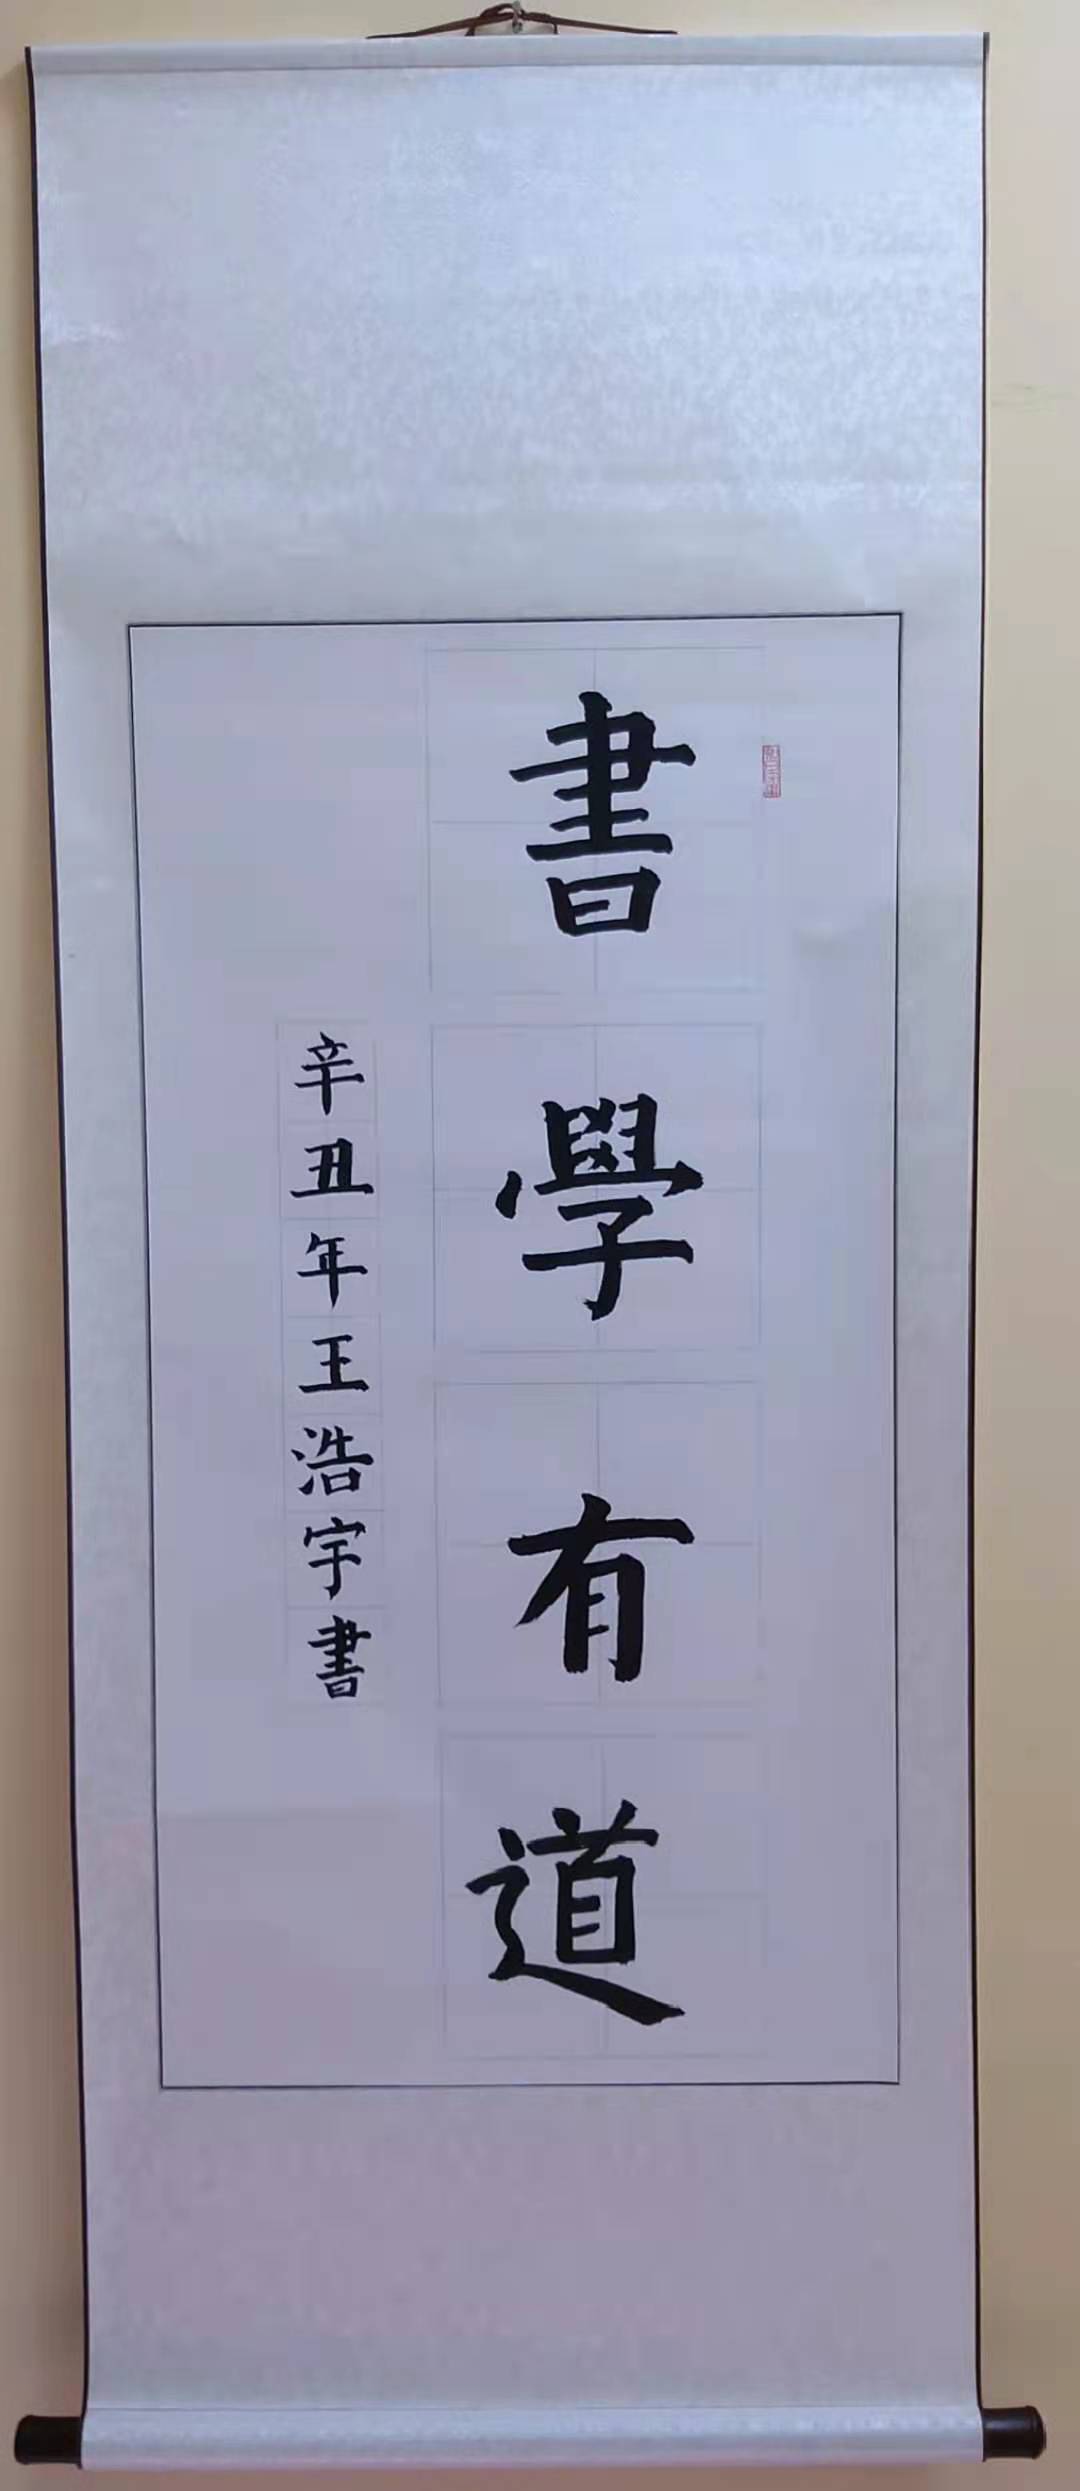 書學有道
辛丑年王浩宇書